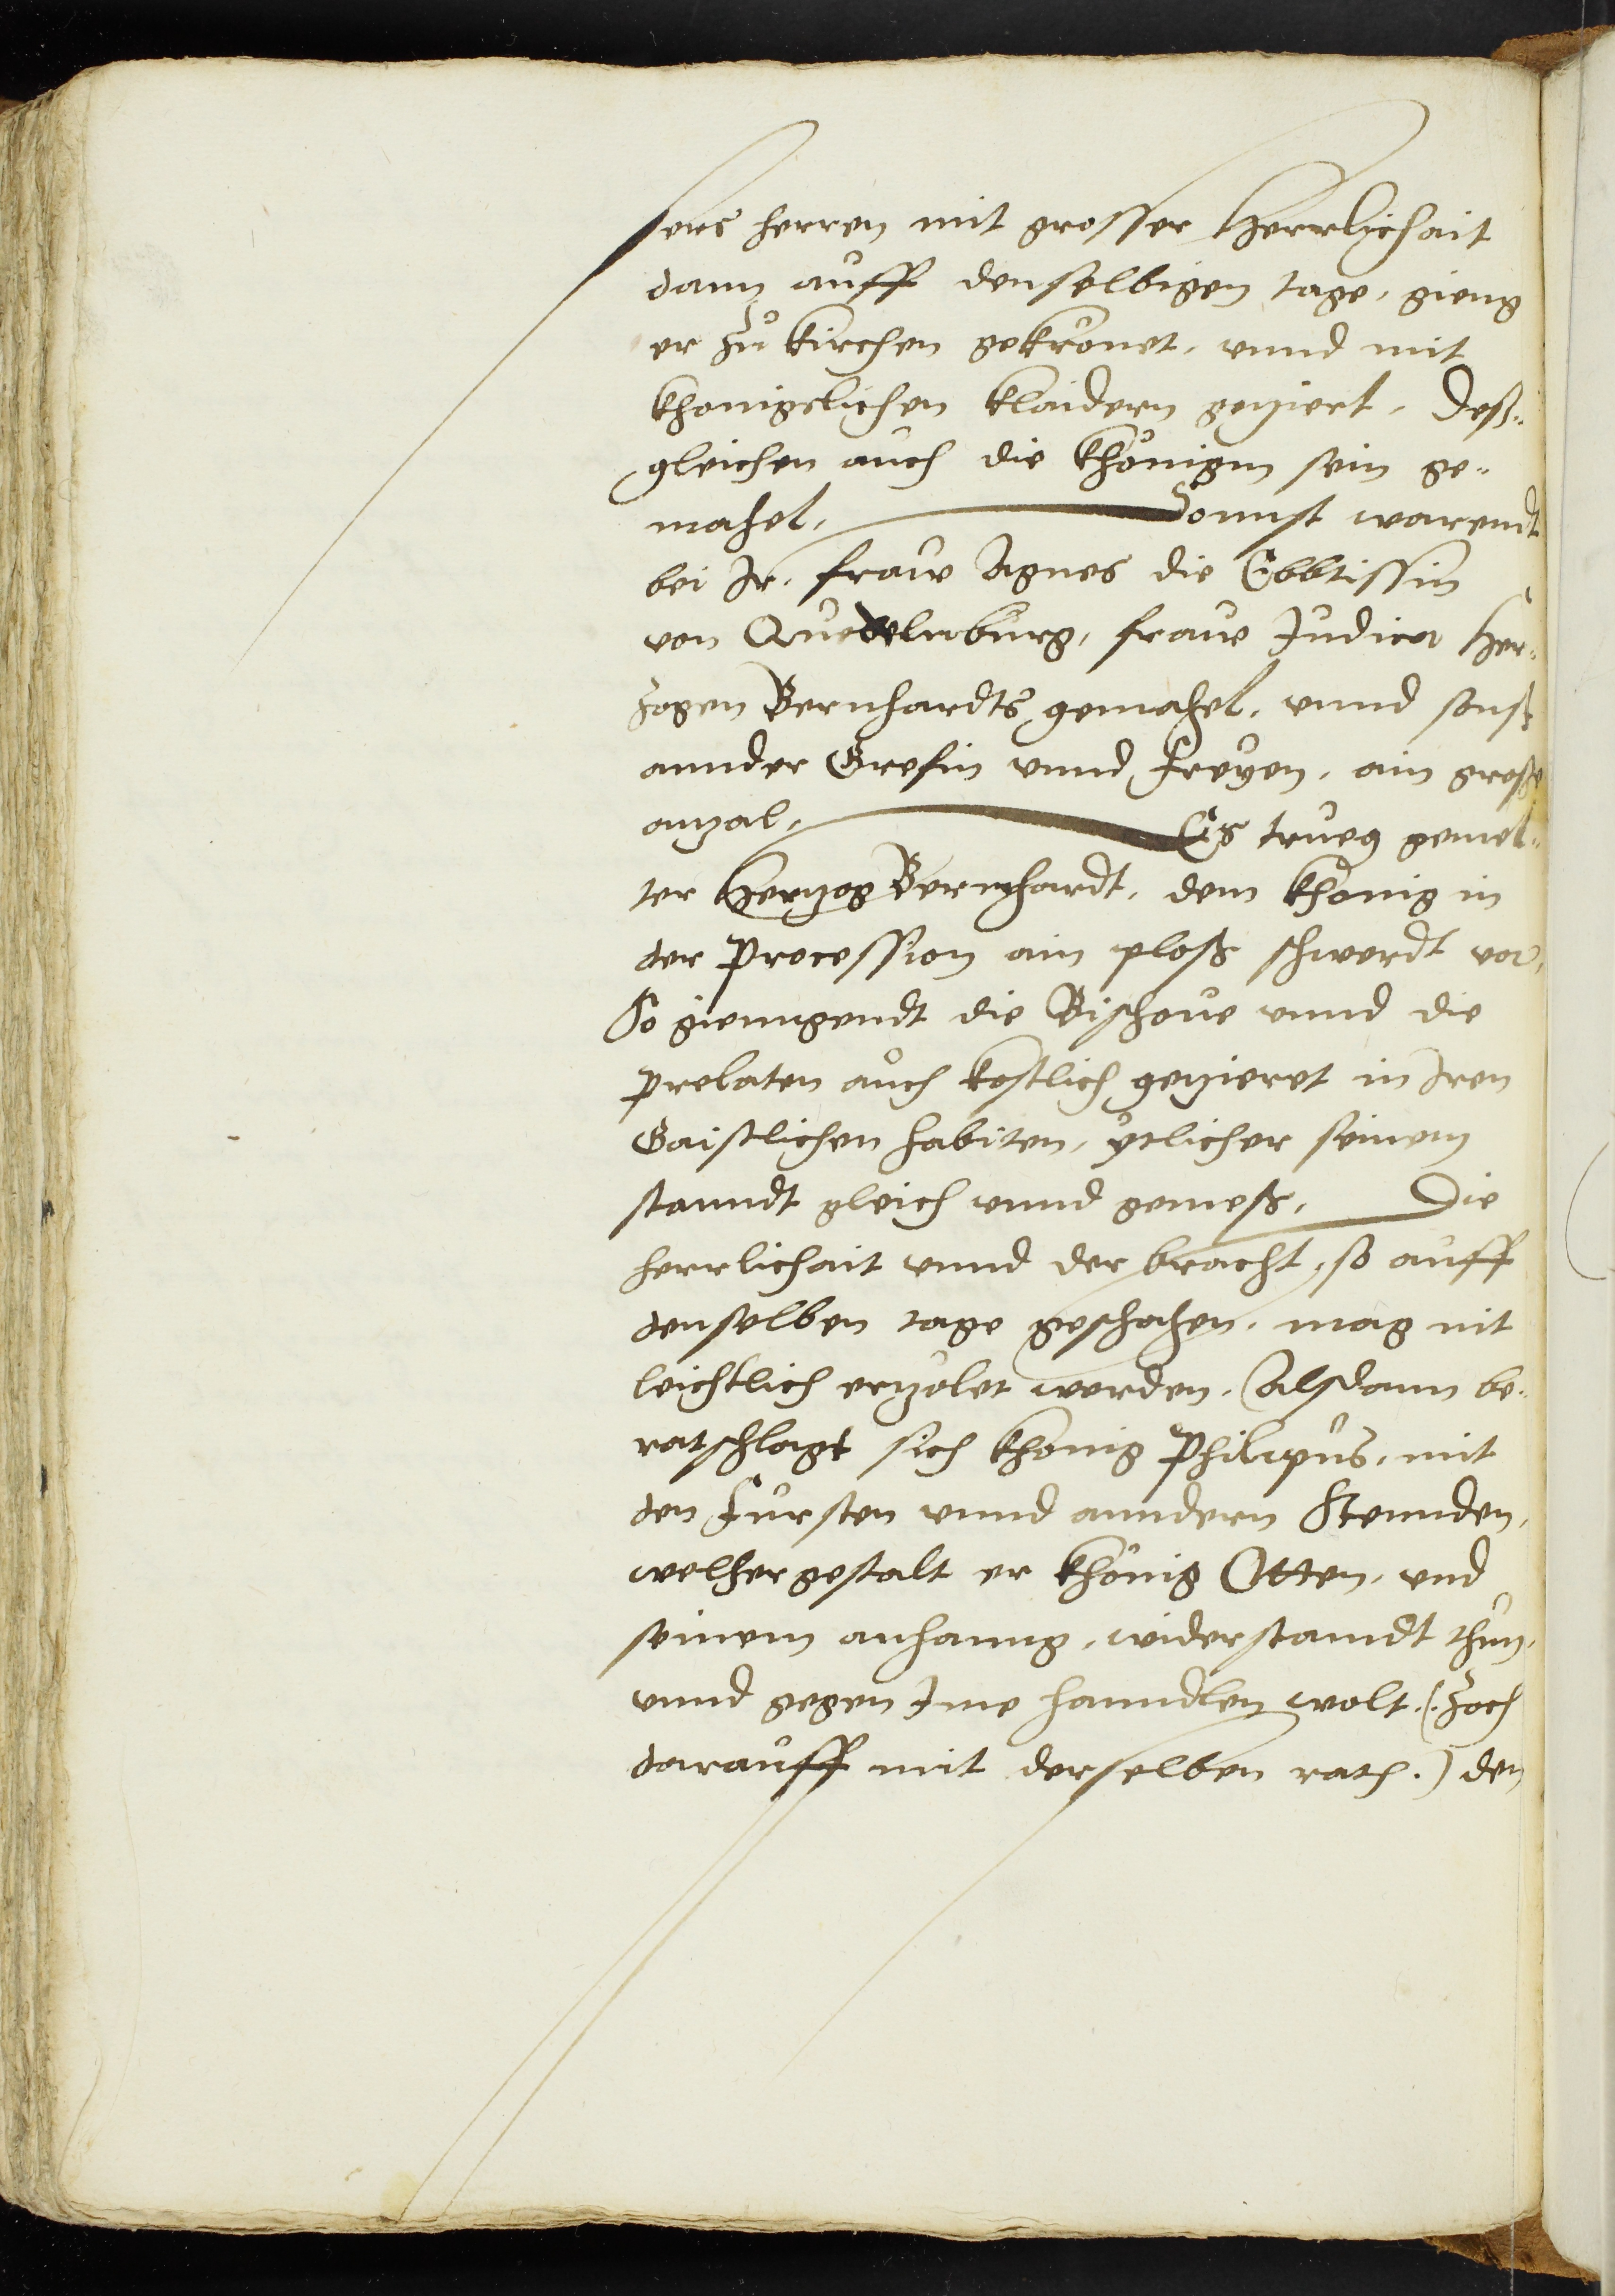 sers herren mit grosser Herrlichait
dann auff denselbigen tage, gieng
er zu kirchen gekrönet, vnnd mit
khonigelichen klaidern geziert, Deß-
gleichen auch die khönigin sein ge-
mahel, Sonnst warendt
bei Ir, fraw Agnes die Ebbtissin
von Quedelnburg, fraw Judica Her-
zogen Bernhardts gemahel, vnnd sonst
annder Grefin vnnd Freyen, ain große
anzal, Es trueg gemel-
ter Herzog Bernhardt, dem khonig in
der Procession ain ploß schwerdt vor,
So giengendt die Bischoue vnnd die
prelaten auch kostlich gezieret in Iren
Gaistlichen habiten, yetlicher seinem
stanndt gleich vnnd gemeß, Die
herrlichait vnnd der bracht, so auff
denselben tage geschahen, mag nit
leichtlich erzölet werden, Alsdann be-
ratschlagt sich khonig Philipus, mit
den Fursten vnnd anndern Stennden,
welher gestalt er khönig Otten, vnd
seinem anhanng, widerstanndt thun,
vnnd gegen Ime hanndlen wolt (. Zoch
darauff mit derselben rath .) den